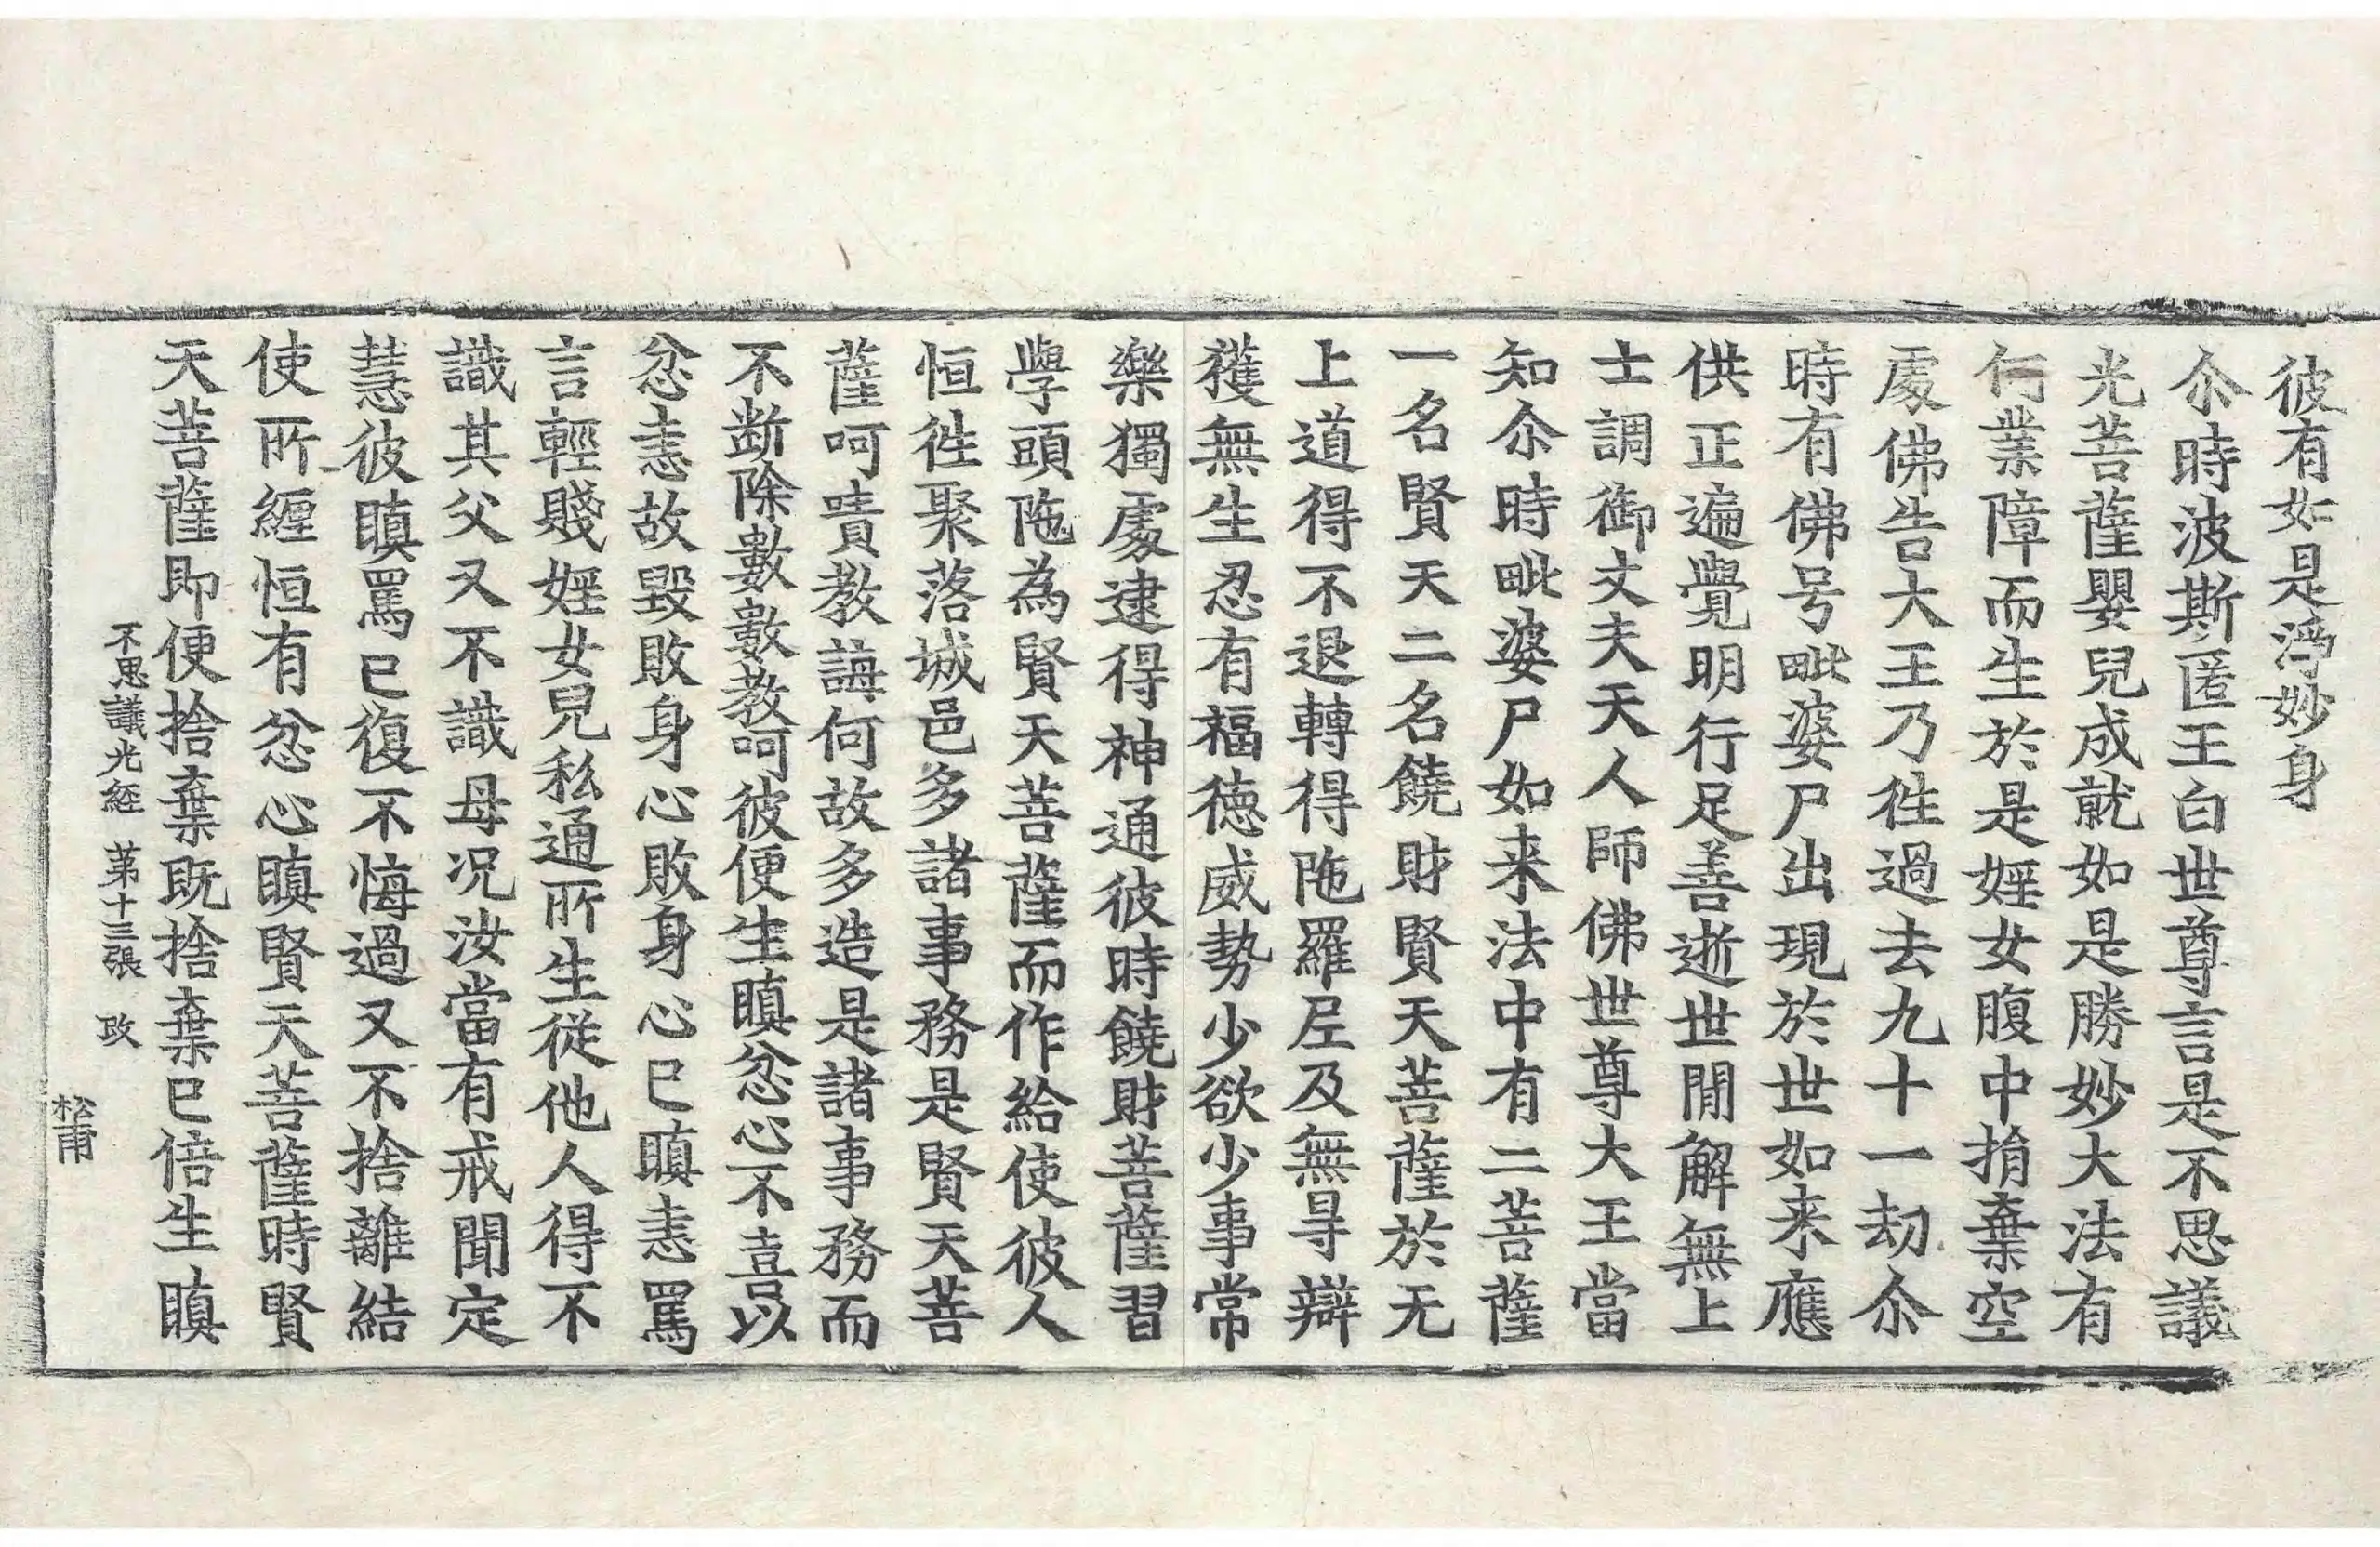 彼有如是淨妙身
尒時波斯匿王白世尊言是不思議
光菩薩嬰兒成就如是勝妙大法有
何業障而生於是婬女腹中捐棄空
處佛告大王乃徃過去九十一劫尒
時有佛号毗婆尸出現於世如来應
供正遍覺明行足善逝世閒解無上
士調御丈夫天人師佛世尊大王當
知尒時毗婆尸如来法中有二菩薩
一名賢天二名饒財賢天菩薩於无
上道得不退轉得陁羅尼及無㝵辯
獲無生忍有福德威勢少欲少事常
樂獨處逮得神通彼時饒財菩薩習
學頭陁為賢天菩薩而作給使彼人
恒徃聚落城邑多諸事務是賢天菩
薩呵嘖教誨何故多造是諸事務而
不断除數數教呵彼便生瞋忿心不喜以
忿恚故毀敗身心敗身心已瞋恚罵
言輕賤婬女兒私通所生從他人得不
識其父又不識母况汝當有戒聞定
慧彼瞋罵已復不悔過又不捨離結
使所纏恒有忿心瞋賢天菩薩時賢
天菩薩即便捨棄既捨棄已倍生瞋
不思議光經 第十三張 改
松甫